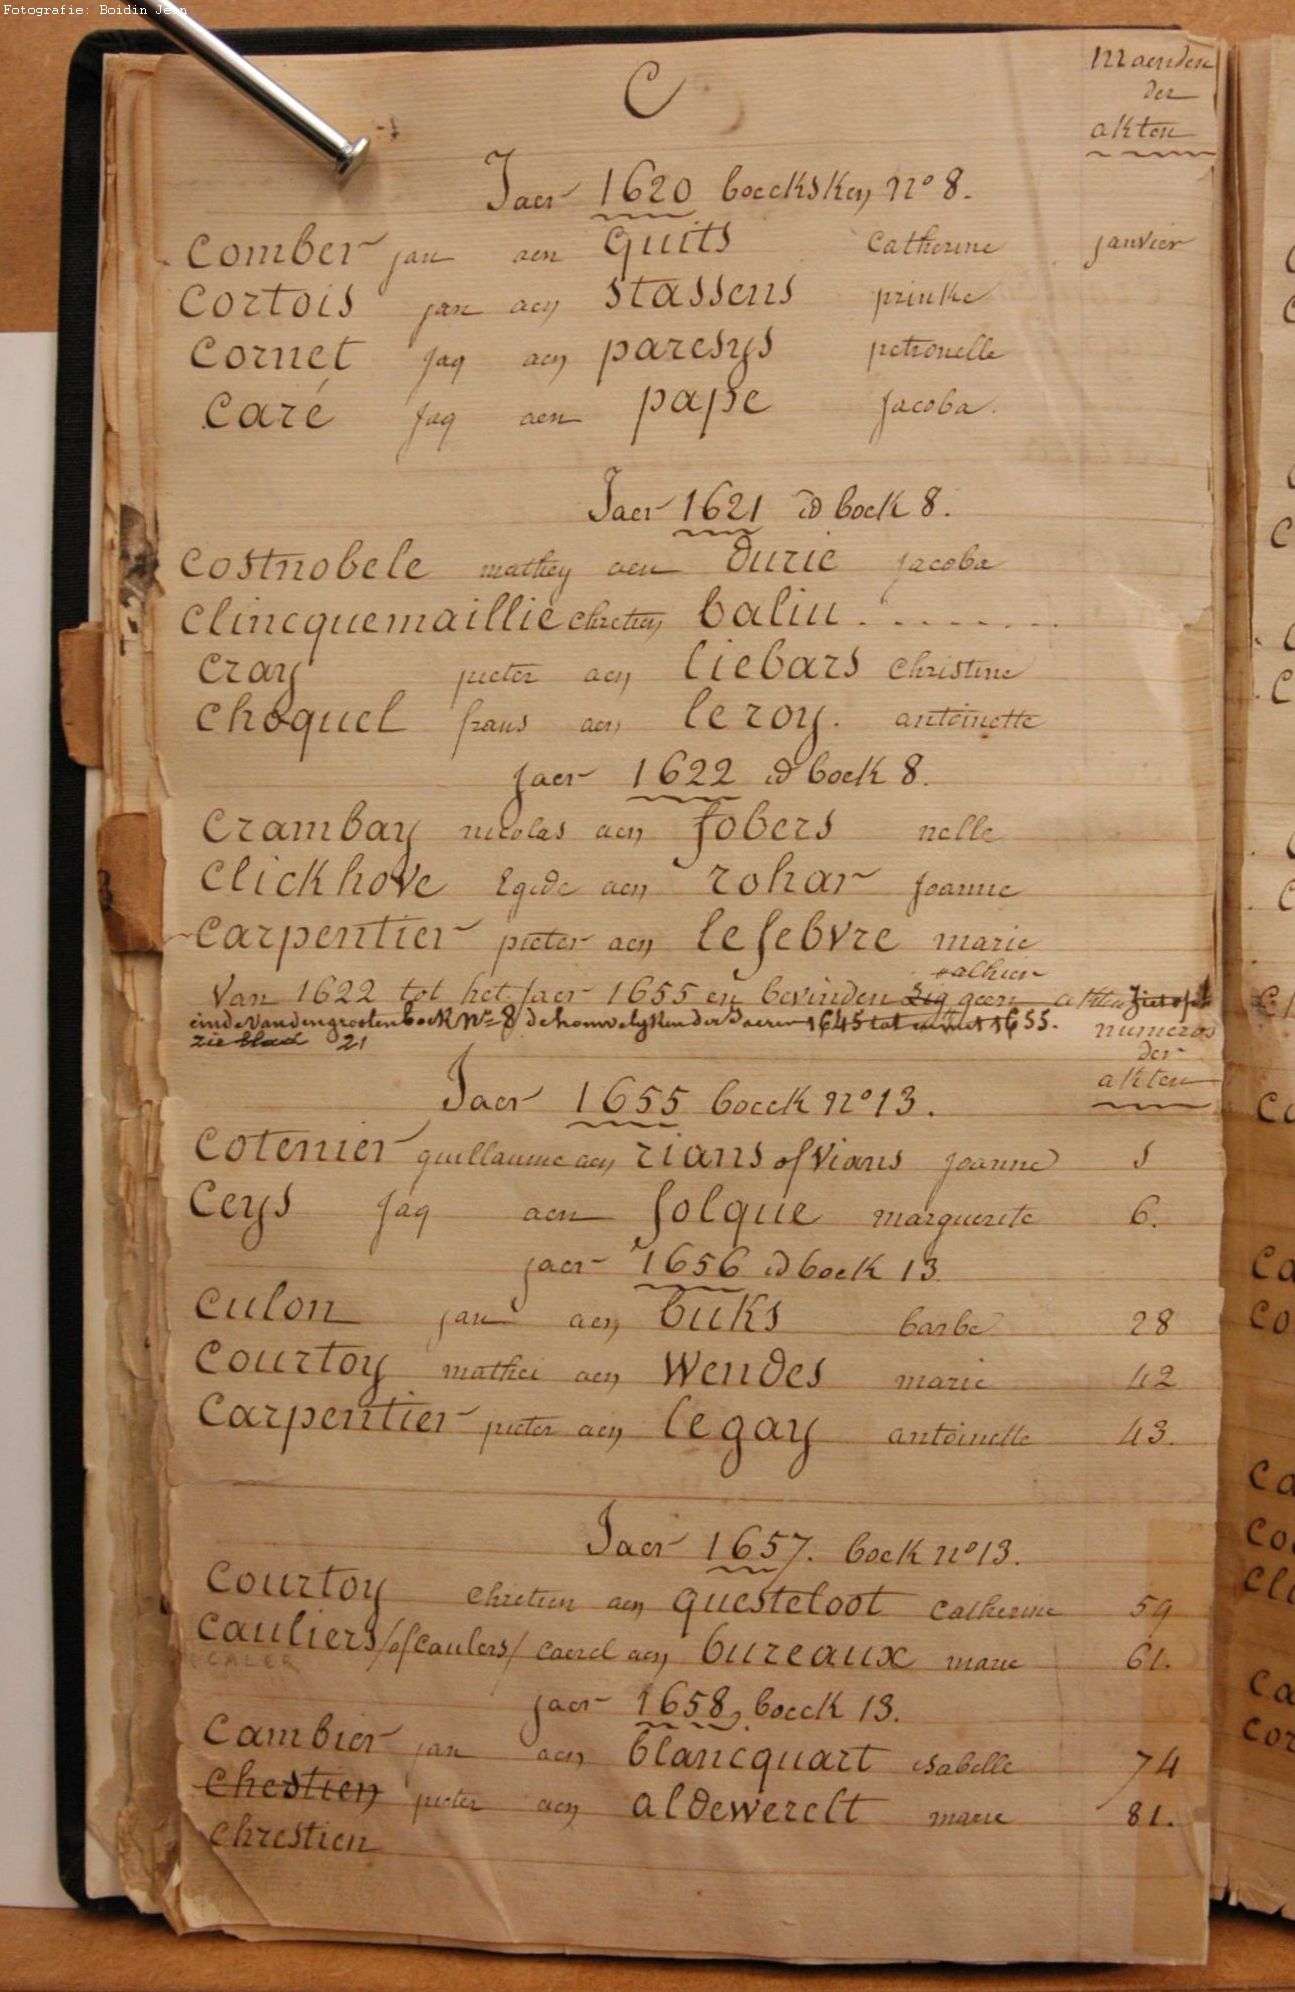 Fotografie: Boidin Jean
C
Maenden
der
akten
Jaer 1620 boecksken nº 8.
Comber jan aen quits Catherine janvier
Cortois jan aen Stassens prinke
Cornet jaq aen paresys petronelle
Caré jaq aen pape jacoba.
Jaer 1621 id boek 8.
Costnobele mathey aen durie jacoba
Clincquemaillie chretien balin . . . . . . . .
Cray pieter aen liebars Christine
Choquel frans aen le roy. antoinette
jaer 1622 id boek 8.
Crambay nicolas aen jobers nelle
Clickhove Egide aen rohar joanne
Carpentier pieter aen lefebvre marie
alhier
Van 1622 tot het jaer 1655 en bevinden zig geen akten ziet op't
einde van den grooten boek Nº 8 de houwelyken der Jaeren 1645 tot en met 1655.
zie blad 21
numeros
der
akten
Jaer 1655 boeck nº 13.
Cotenier guillaume aen rians of vians joanne 5
Ceys jaq aen folque marguerite 6.
jaer 1656 id boek 13
Culon jan aen buks barbe 28
Courtoy mathei aen Wendes marie 42
Carpentier pieter aen legay antoinette 43.
Jaer 1657. boek nº 13.
Courtoy chretien aen questeloot Catherine 59
Cauliers /of caulers/ caerel aen bureaux marie 61.
jaer 1658, boeck 13.
Cambier jan aen blancquart isabelle 74
Chestien pieter aen aldewerelt marie 81.
Chrestien